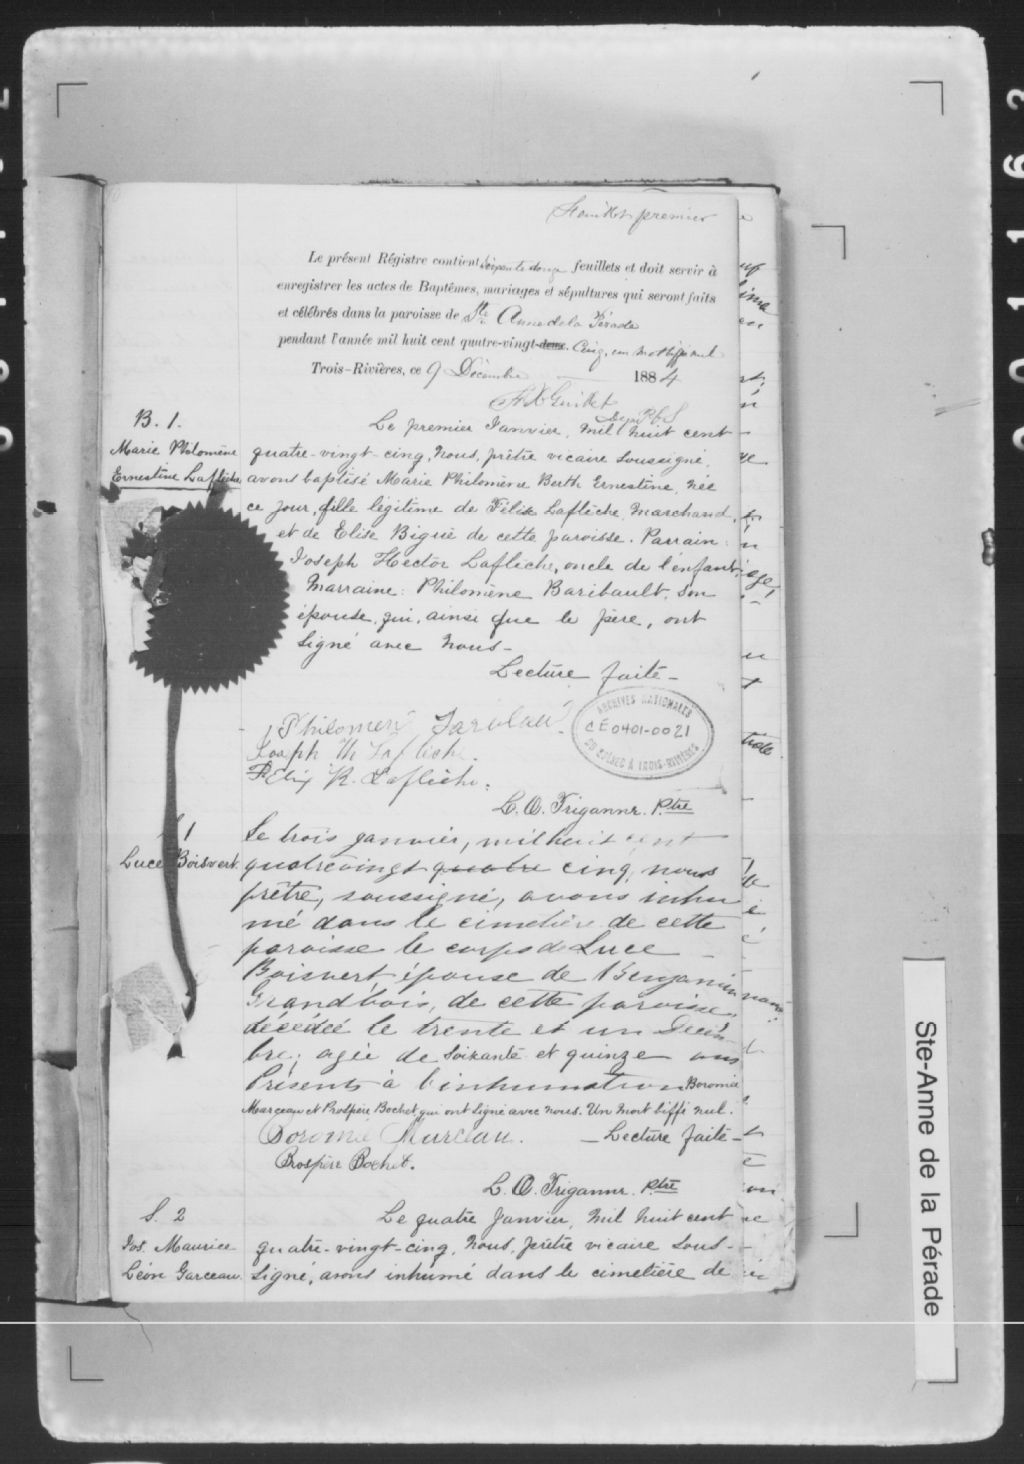 Feuillet premier
Le présent Régistre contient soixante douze feuillets et doit servir à
enregistrer les actes de Baptêmes, mariages et sépultures qui seront faits
et célébrés dans la paroisse de Ste. Anne de la Pérade
pendant l'année mil huit cent quatre-vingt-deux. Cinq, un mot biffé nul
Trois-Rivières, ce 9 Décembre 1884
F X Guillet
Dep. P.C.S
B. 1.
Marie Philomène
Ernestine Laflèche
Le premier Janvier, mil huit cent
quatre-vingt-cinq, nous, prêtre vicaire soussigné,
avons baptisé Marie Philomène Berth Ernestine, née
ce jour, fille légitime de Félix Laflèche, marchand,
et de Elise Bigué de cette paroisse. Parrain:
Joseph Hector Laflèche, oncle de l'enfant;
Marraine: Philomène Baribault, son
épouse, qui, ainsi que le père, ont
signé avec nous-
Lecture faite-
Philomen
Joseph H Laflèche.
Félix R. Laflèche.
ARCHIVES NATIONALES
CE0401-0021
DU QUÉBEC À TROIS-RIVIÈRES
L. O. Triganne. Ptre
S 1
Luce Boisvert.
Le trois janvier, mil huit cent
quatrevingt quatre cinq, nous
prêtre, soussigné, avons inhu
mé dans le cimetière de cette
paroisse le corps de Luce
Boisvert, épouse de Benjamin
Grandbois, de cette paroisse,
décédée le trente et un Décem-
bre; agée de soixante et quinze ans
Présents à l'inhumation Boromée
Marceau et Prospère Bochet qui ont signé avec nous. Un mot biffé nul.
Boromé Marceau. - Lecture faite-
Prospère Bochet.
L. O. Triganne. Ptre
S. 2
Jos. Maurice
Léon Garceau.
Le quatre Janvier, mil huit cent
quatre-vingt-cinq, nous, prêtre vicaire sous-
signé, avons inhumé dans le cimetière de
Ste-Anne de la Pérade